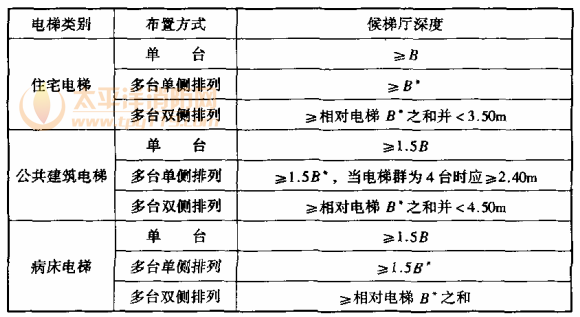 电梯类别 布置方式 候梯厅深度
住宅电梯 单 台 ≥B
多台单侧排列 ≥B*
多台双侧排列 ≥相对电梯 B*之和并＜3.50m
公共建筑电梯 单 台 ≥1.5B
多台单侧排列 ≥1.5B*，当电梯群为4台时应≥2.40m
多台双侧排列 ≥相对电梯 B*之和并＜4.50m
病床电梯 单 台 ≥1.5B
多台单侧排列 ≥1.5B*
多台双侧排列 ≥相对电梯 B*之和
太平洋消防网